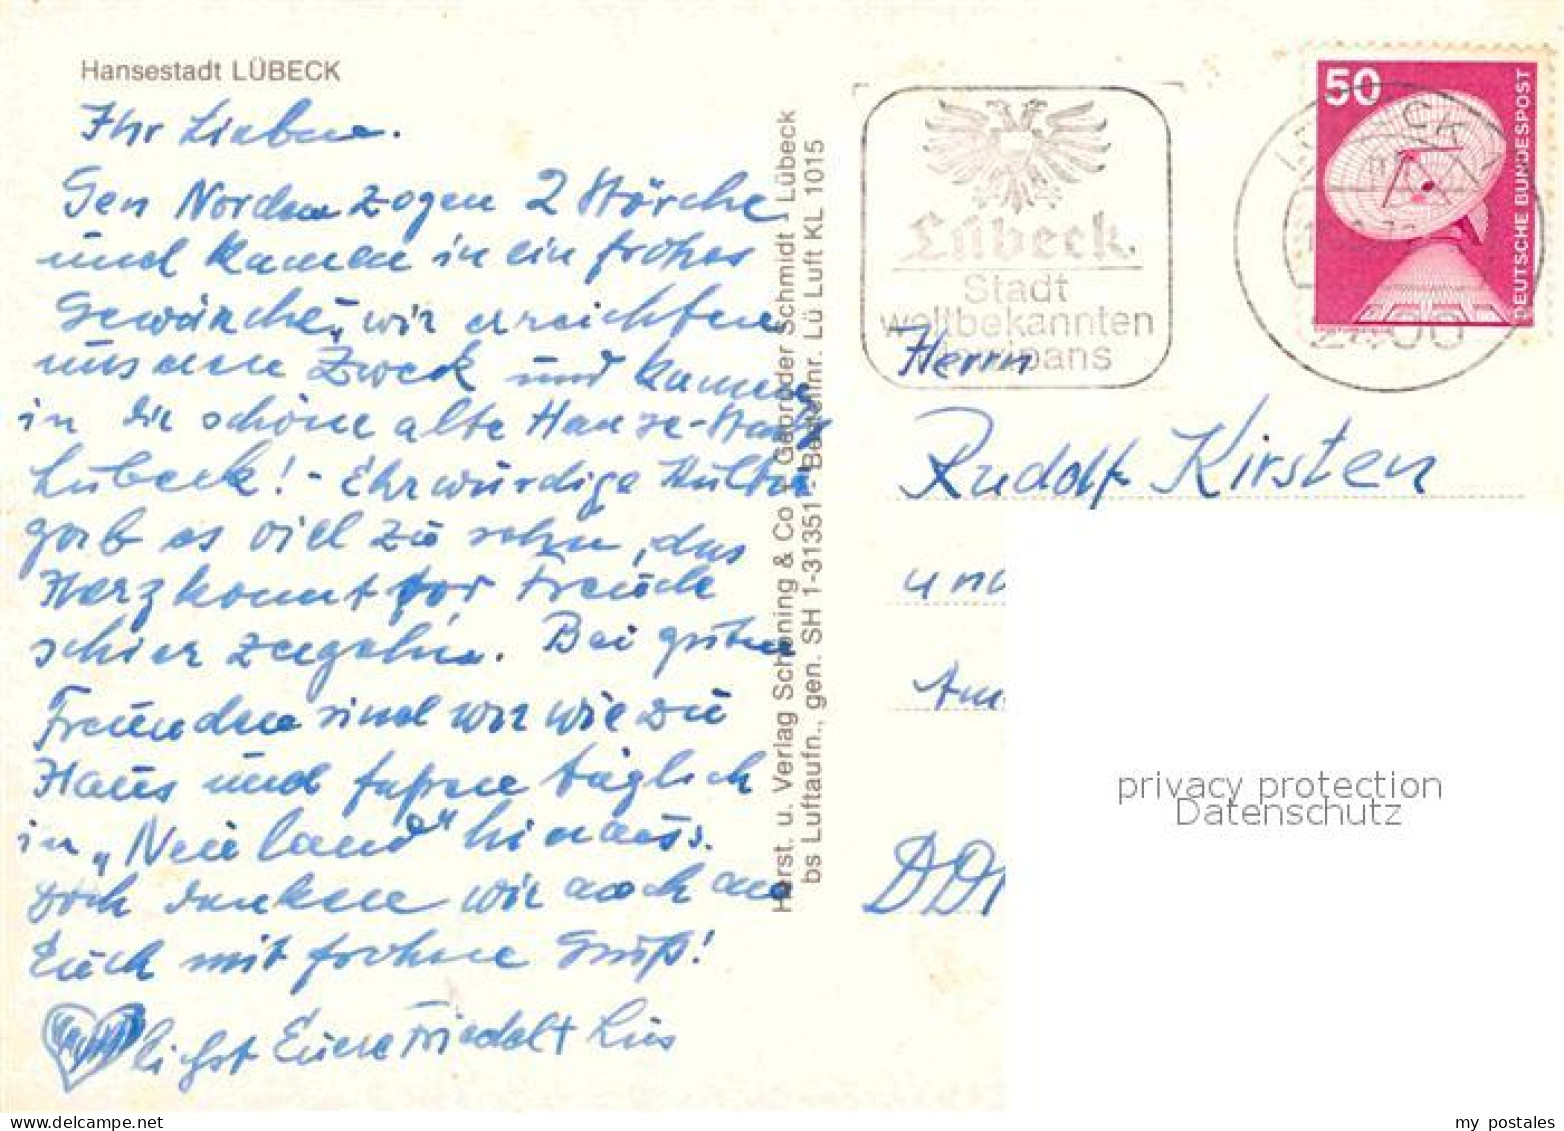 Hansestadt LÜBECK
Ihr Lieben.
Gen Norden zogen 2 Störche
und kamen in ein frohes
Gewärche, wir erreichten
unseren Zweck und kamen
in die schöne alte Hanse-Stadt
Lübeck! - Ehrwürdige Kultur
gab es viel zu sehn, das
Herz konnt vor Freude
schier zergehn. Bei guten
Freunden sind wir wie zu
Haus und fahren täglich
in "Neuland" hinaus.
Doch denken wir auch an
Euch mit frohem Gruß!
lichst Eure Friedelt
Herst. u. Verlag Schöning & Co + Gebrüder Schmidt - Lübeck
bs Luftaufn., gen. SH 1-31351 - Bestellnr. Lü Luft KL 1015
Lübeck.
Stadt
weltbekannten
Marzipans
50
DEUTSCHE BUNDESPOST
LÜBECK 1
2400
Herrn
Rudolf Kirsten
und
Am
DDR
privacy protection
Datenschutz
my postales